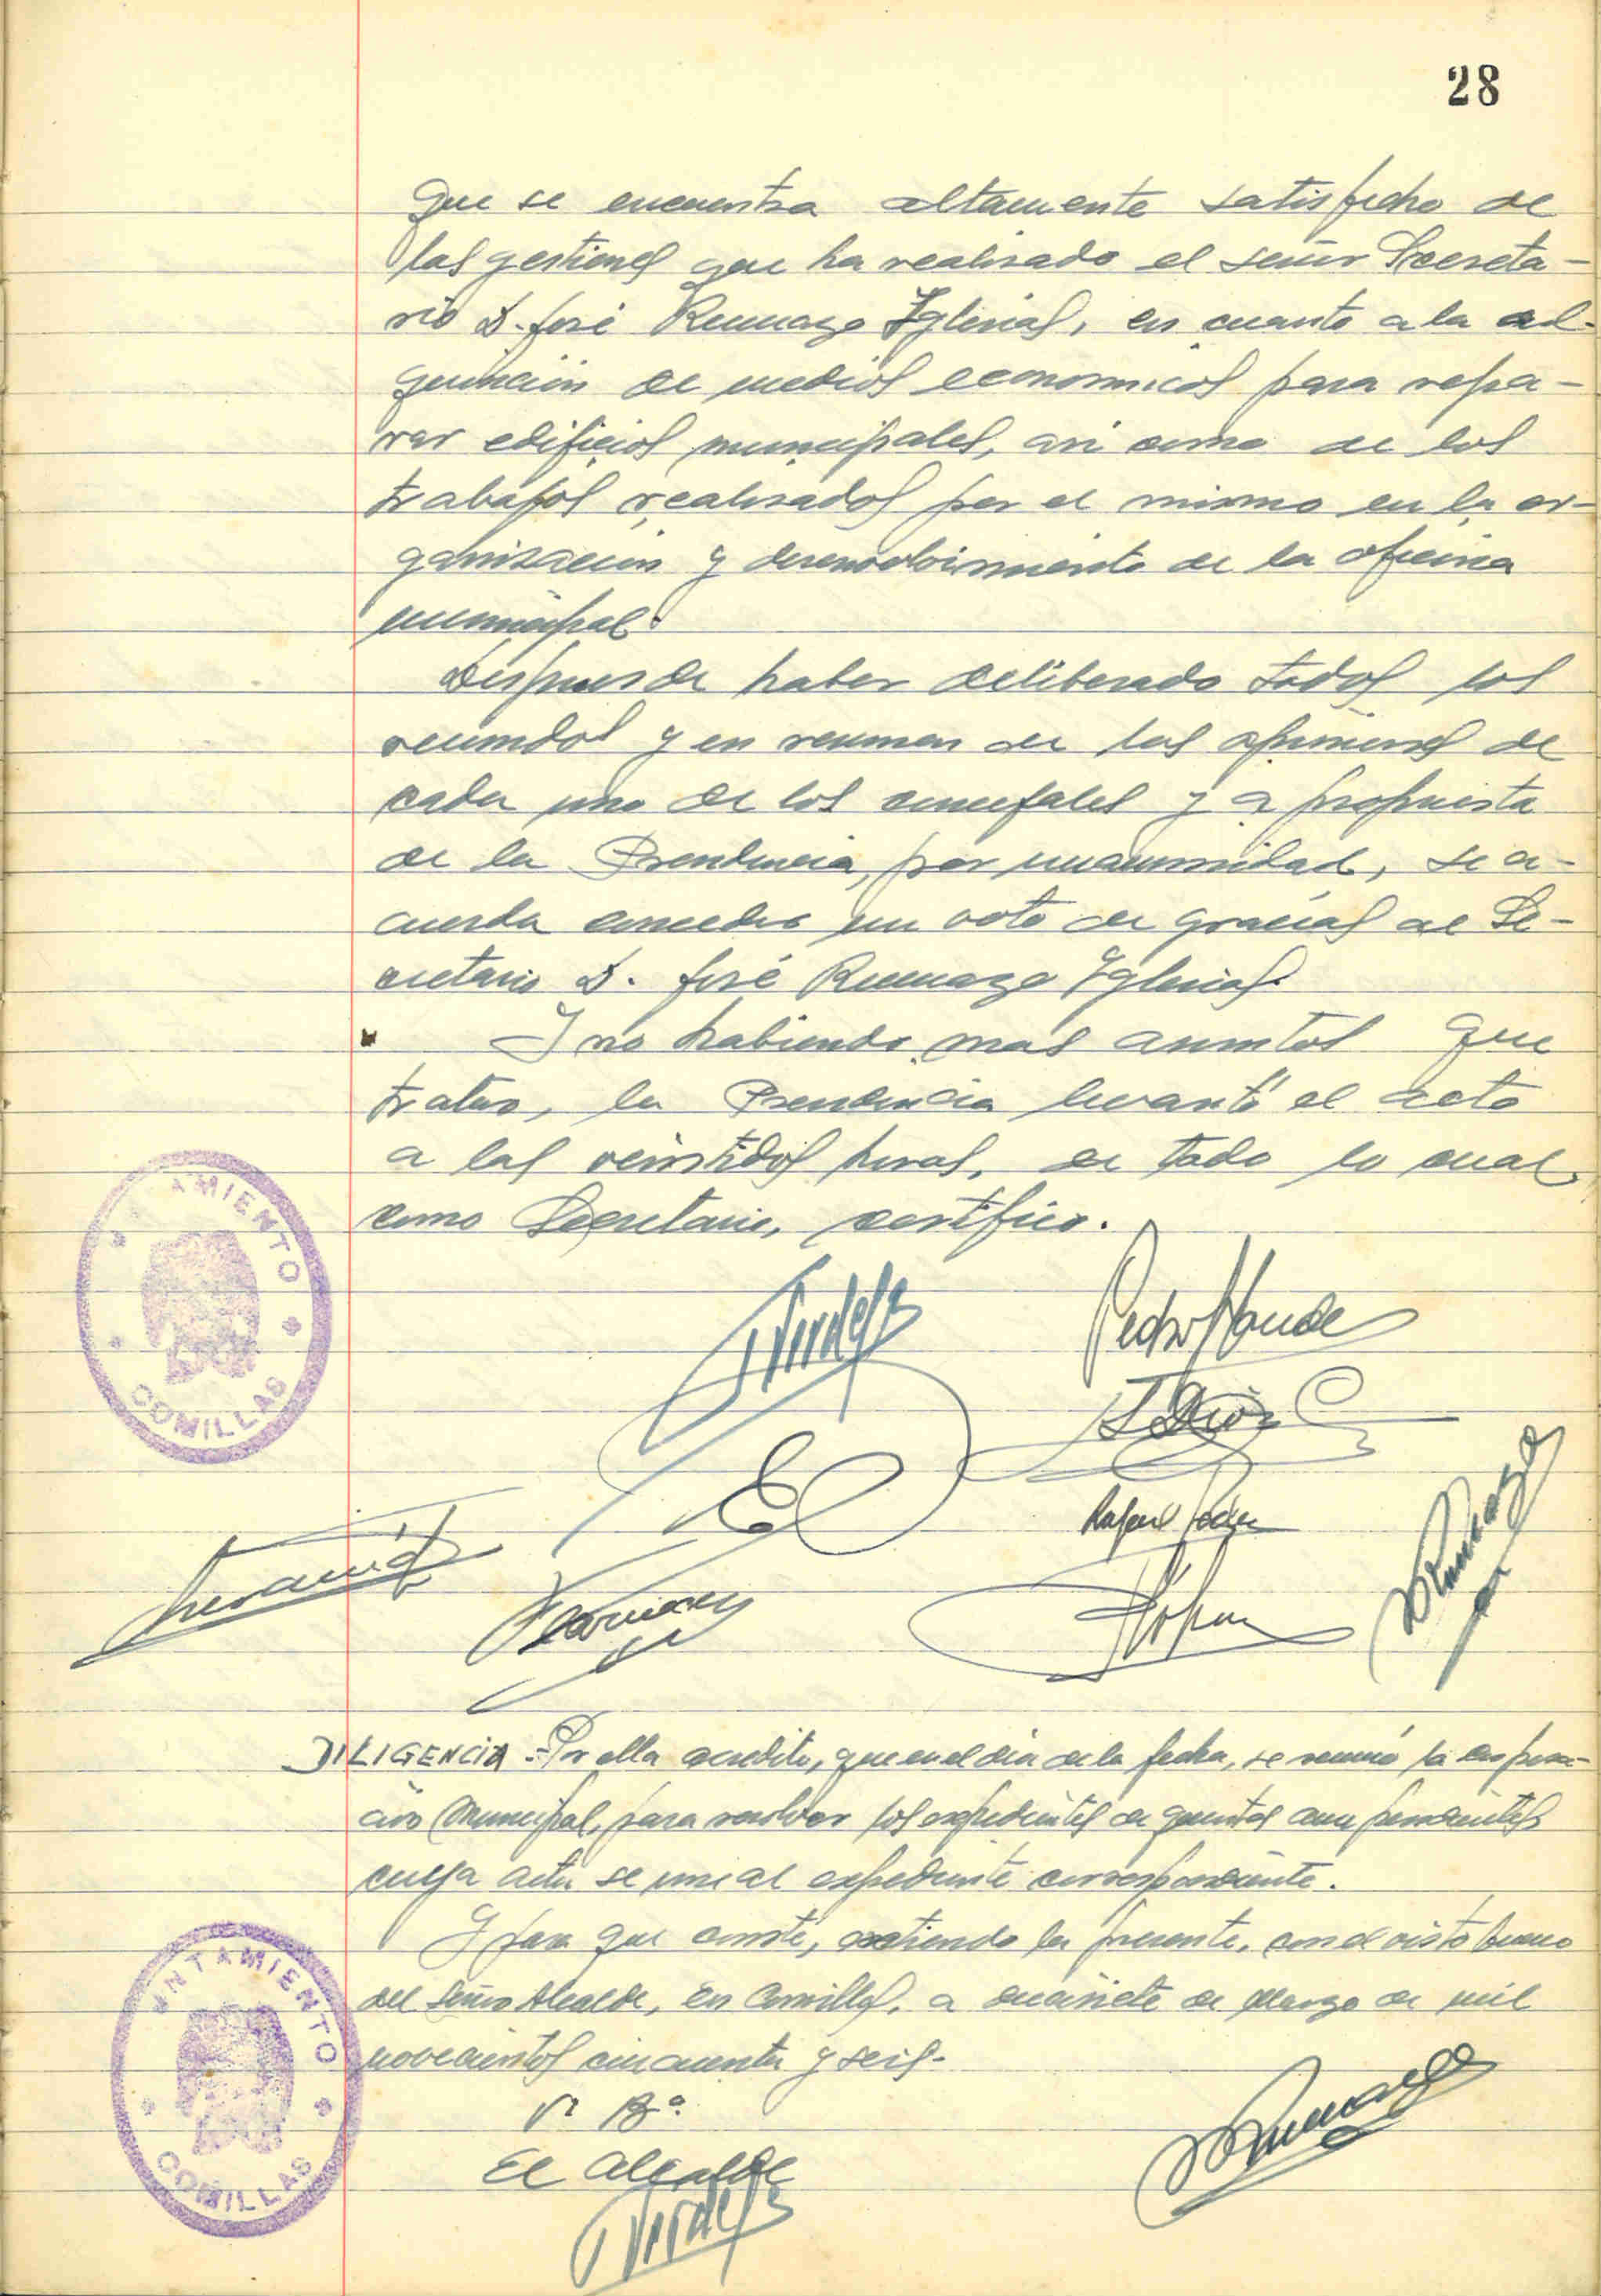 28
que se encuentra altamente satisfecho de
las gestiones que ha realizado el señor Secreta-
rio D. José Rumazo Iglesias, en cuanto a la ad-
quisición de medios economicos para repa-
rar edificios municipales, asi como de los
trabajos realizados por el mismo en la or-
ganización y desenvolvimiento de la oficina
municipal.
Despues de haber deliberado todos los
reunidos y en resumen de las opiniones de
cada uno de los concejales y a propuesta
de la Presidencia, por unanimidad, se a-
cuerda conceder un voto de gracias al Se-
cretario D. José Rumazo Iglesias.
Y no habiendo mas asuntos que
tratar, la Presidencia levantó el acto
a las veintidos horas, de todo lo cual
como Secretario, certifico.
AYUNTAMIENTO
COMILLAS
Pedro
J. Díaz
Rafael
López
Rumazo
DILIGENCIA.- Por ella acredito, que en el dia de la fecha, se reunió la corpora-
ción Municipal, para resolver los expedientes de quintas pendientes
cuya acta se une al expediente correspondiente.
Y para que conste, extiendo la presente, con el visto bueno
del señor Alcalde, en Comillas, a diecisiete de Marzo de mil
novecientos cincuenta y seis.-
Vº Bº
El Alcalde
AYUNTAMIENTO
COMILLAS
Rumazo